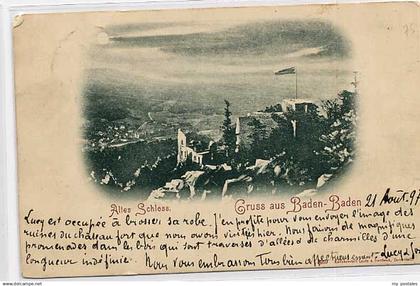 Altes Schloss.
Gruss aus Baden-Baden
21 Août 97
Lucy est occupée à brosser sa robe. J'en profite pour vous envoyer l'image des
ruines du château fort que nous avons visitées hier. Nous faisons de magnifiques
promenades dans les bois qui sont traversés d'allées de charmilles d'une
longueur indéfinie. Nous vous embrassons tous bien affectueusement Lucy